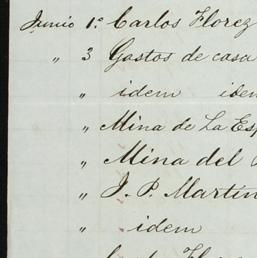 Junio 1.º Carlos Florez
" 3 Gastos de casa
" idem idem
" Mina de La Esp
" Mina del
" J. P. Martin
" idem